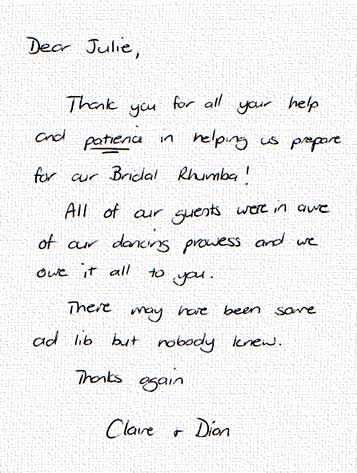 Dear Julie,
Thank you for all your help
and patience in helping us prepare
for our Bridal Rhumba!
All of our guests were in awe
of our dancing prowess and we
owe it all to you.
There may have been some
ad lib but nobody knew.
Thanks again
Claire + Dion